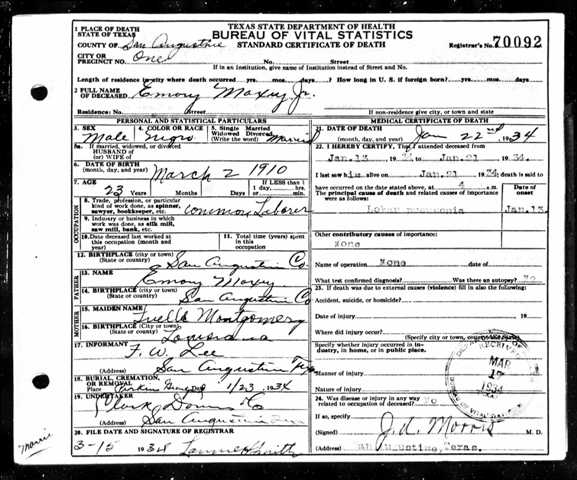 TEXAS STATE DEPARTMENT OF HEALTH
BUREAU OF VITAL STATISTICS
STANDARD CERTIFICATE OF DEATH
Registrar's No. 70092
1 PLACE OF DEATH
STATE OF TEXAS
COUNTY OF San Augustine
CITY OR
PRECINCT NO. One
If in an institution, give name of institution instead of Street and No.
Length of residence in city where death occurred yrs. mos. days? How long in U. S. if foreign born? yrs. mos. days
2 FULL NAME
OF DECEASED Emory Maxey Jr.
Residence: No. Street
If non-residence give, city or town and state
PERSONAL AND STATISTICAL PARTICULARS
3. SEX
Male
4. COLOR OR RACE
Negro
5. Single Married Widowed Divorced
(Write the word) Married
5a. If married, widowed, or divorced
HUSBAND OF
(or) WIFE OF
6. DATE OF BIRTH
(month, day, and year) March 2 1910
7. AGE
23 Years Months Days
IF LESS than 1
1 day, hrs.
min.
OCCUPATION
8. Trade, profession, or particular kind of work done, as spinner, sawyer, bookkeeper, etc. common Laborer
9. Industry or business in which work was done, as silk mill, saw mill, bank, etc.
10. Date deceased last worked at this occupation (month and year)
11. Total time (years) spent in this occupation
12. BIRTHPLACE (city or town)
(State or country) San Augustine Co
FATHER
13. NAME
Emory Maxey
14. BIRTHPLACE (city or town)
(State or country) San Augustine Co
MOTHER
15. MAIDEN NAME
Montgomery
16. BIRTHPLACE (City or town)
(State or country) Louisiana
17. INFORMANT F. W. Lee
(Address) San Augustine Tex
18. BURIAL, CREMATION, OR REMOVAL
Place 1/23, 1934
19. UNDERTAKER
Clark Downs Co
(Address) San Augustine
20. FILE DATE AND SIGNATURE OF REGISTRAR
3-15 1934
MEDICAL CERTIFICATE OF DEATH
21. DATE OF DEATH
(month, day, and year) Jan 22nd 1934
22. I HEREBY CERTIFY, That I attended deceased from
Jan.13 1934 to Jan.21 1934.
I last saw him alive on Jan.21 1934 death is said to
have occurred on the date stated above, at m.
The principal cause of death and related causes of importance were as follows:
Date of onset
Lobar Pneumonia Jan.13
Other contributory causes of importance:
None
Name of operation None
What test confirmed diagnosis? Was there an autopsy? No
23. If death was due to external causes (violence) fill in also the following:
Accident, suicide, or homicide?
Date of injury 19
Where did injury occur?
(Specify city or town, county, and state)
Specify whether injury occurred in industry, in home, or in public place.
Manner of injury
Nature of injury
24. Was disease or injury in any way related to occupation of deceased? No
If so, specify
(Signed) J. A. Morris M. D.
(Address) San Augustine, Texas.
RECEIVED
MAR
17
1934
Morris